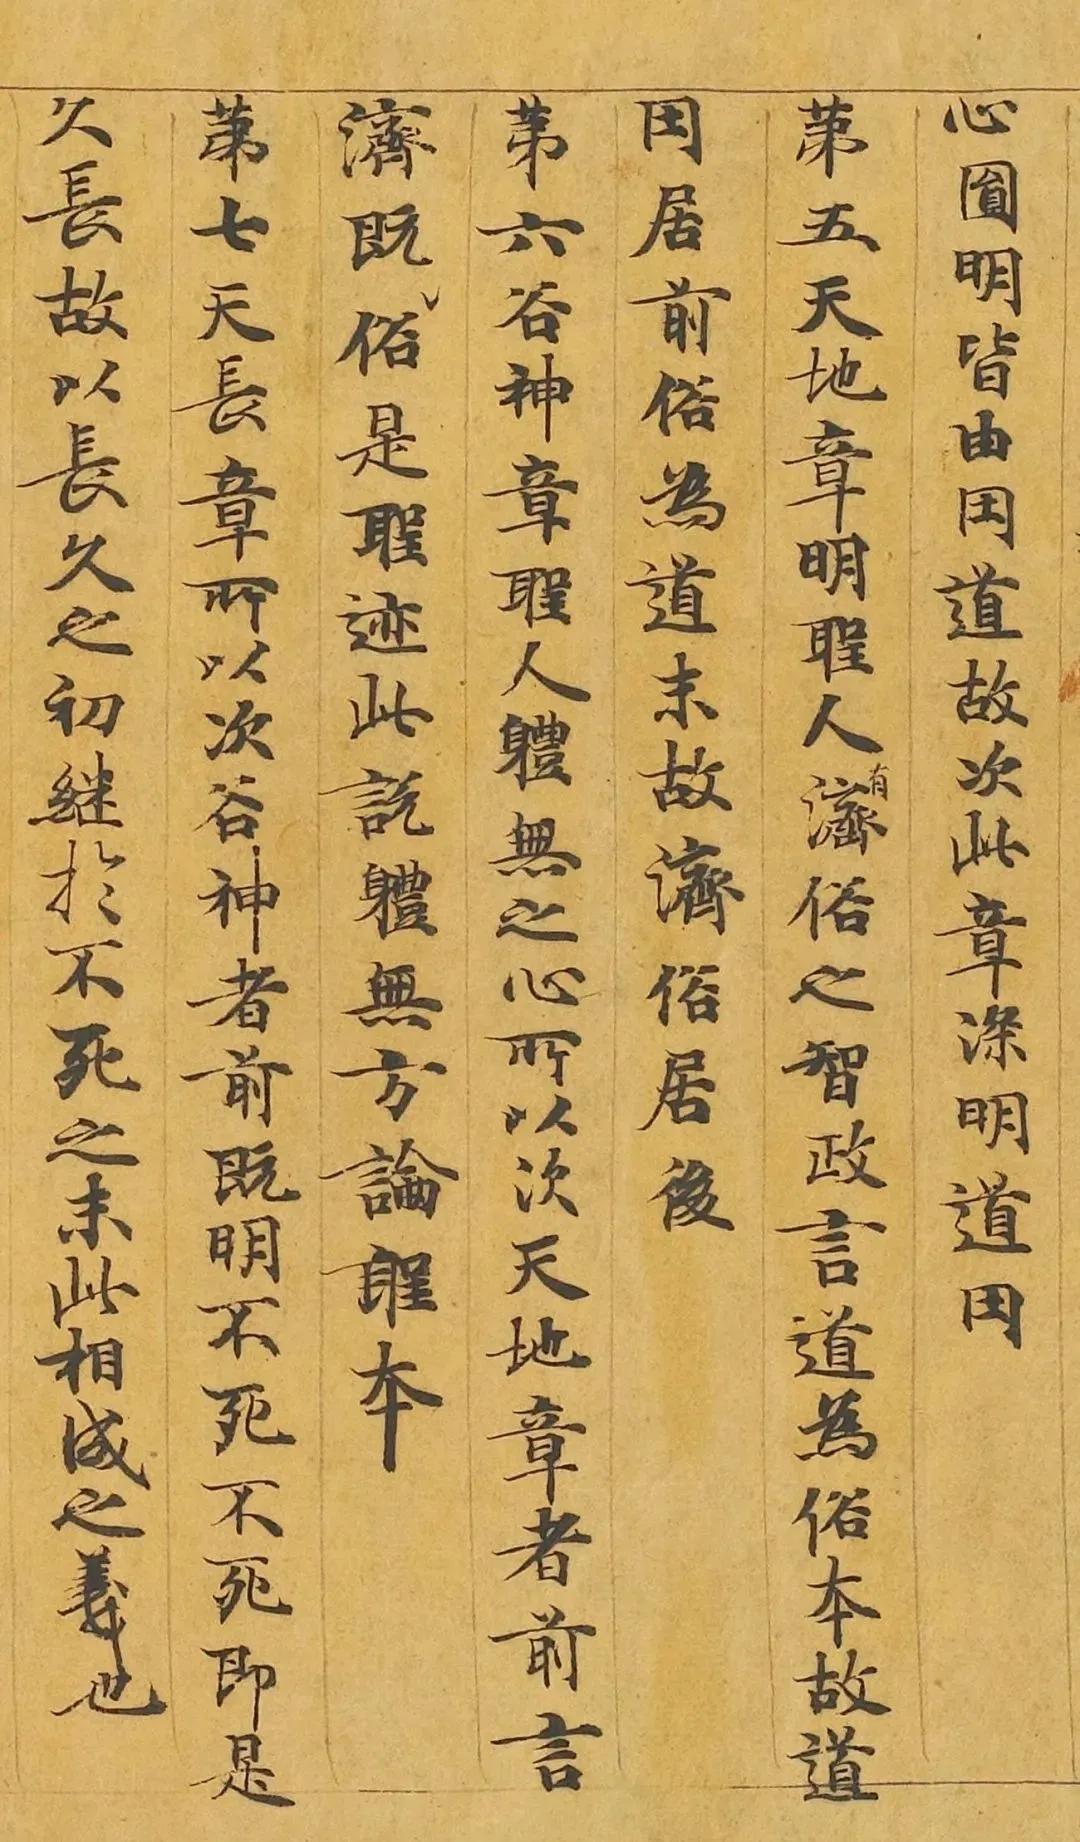 心圎明皆由用道故次此章深明道用
第五天地章明聖人有濟俗之智政言道為俗本故道
用居前俗為道末故濟俗居後
第六谷神章聖人軆無之心所以次天地章者前言
濟既俗是聖迹此說軆無方論聖本
第七天長章所以次谷神者前既明不死不死即是
久長故以長久之初継於不死之末此相成之義也